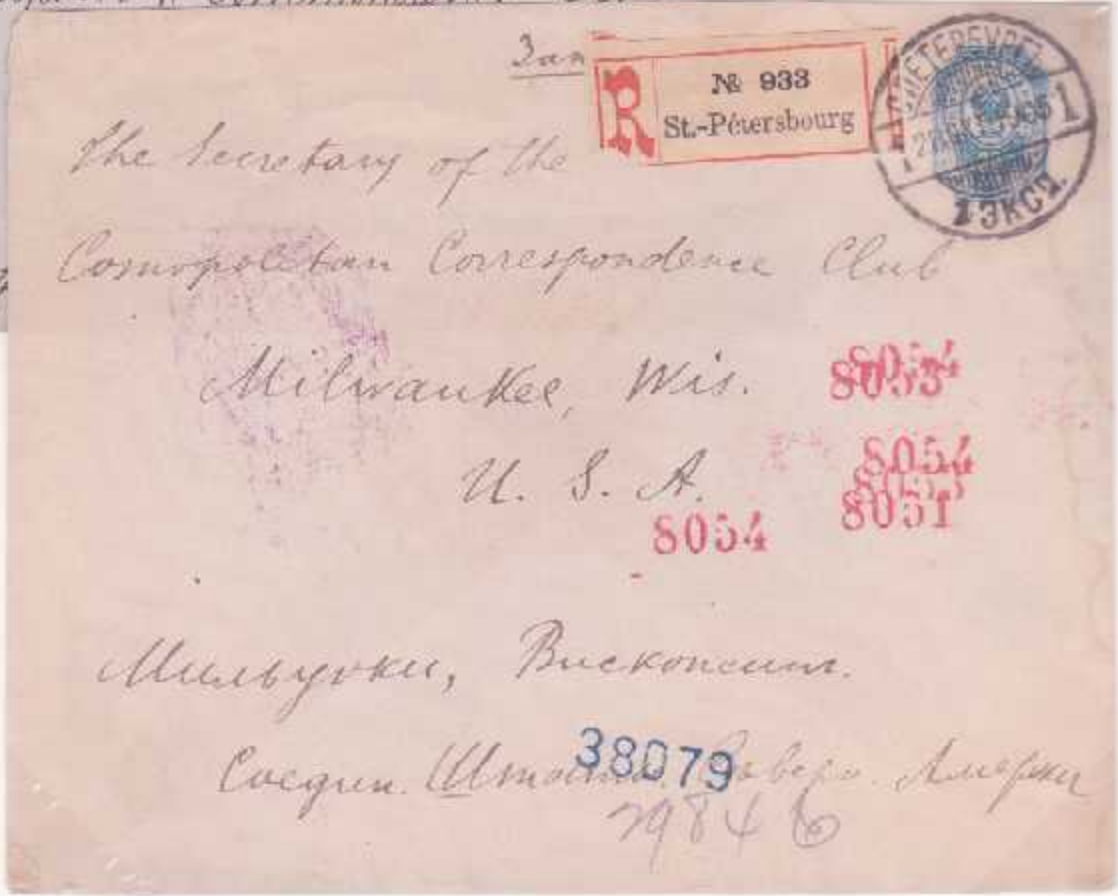 Зак
R № 933
St.-Pétersbourg
С.ПЕТЕРБУРГЪ 1
1 ЭКСП.
The Secretary of the
Cosmopolitan Correspondence Club
Milwaukee, Wis.
8054
8053
U. S. A.
8054
8053
8051
8054
Мильуоки, Висконсин.
Соедин. Штаты Северо. Америки
38079
29846